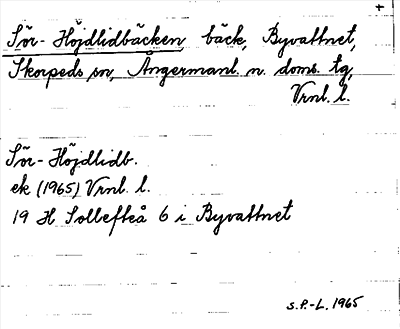 +
Sör-Höjdlidbäcken bäck, Byvattnet,
Skorpeds sn, Ångermanl. n. doms. tg,
Vrnl. l.
Sör-Höjdlidb.
ek (1965) Vrnl. l.
19 H Sollefteå 6 i Byvattnet
S.P.-L. 1965